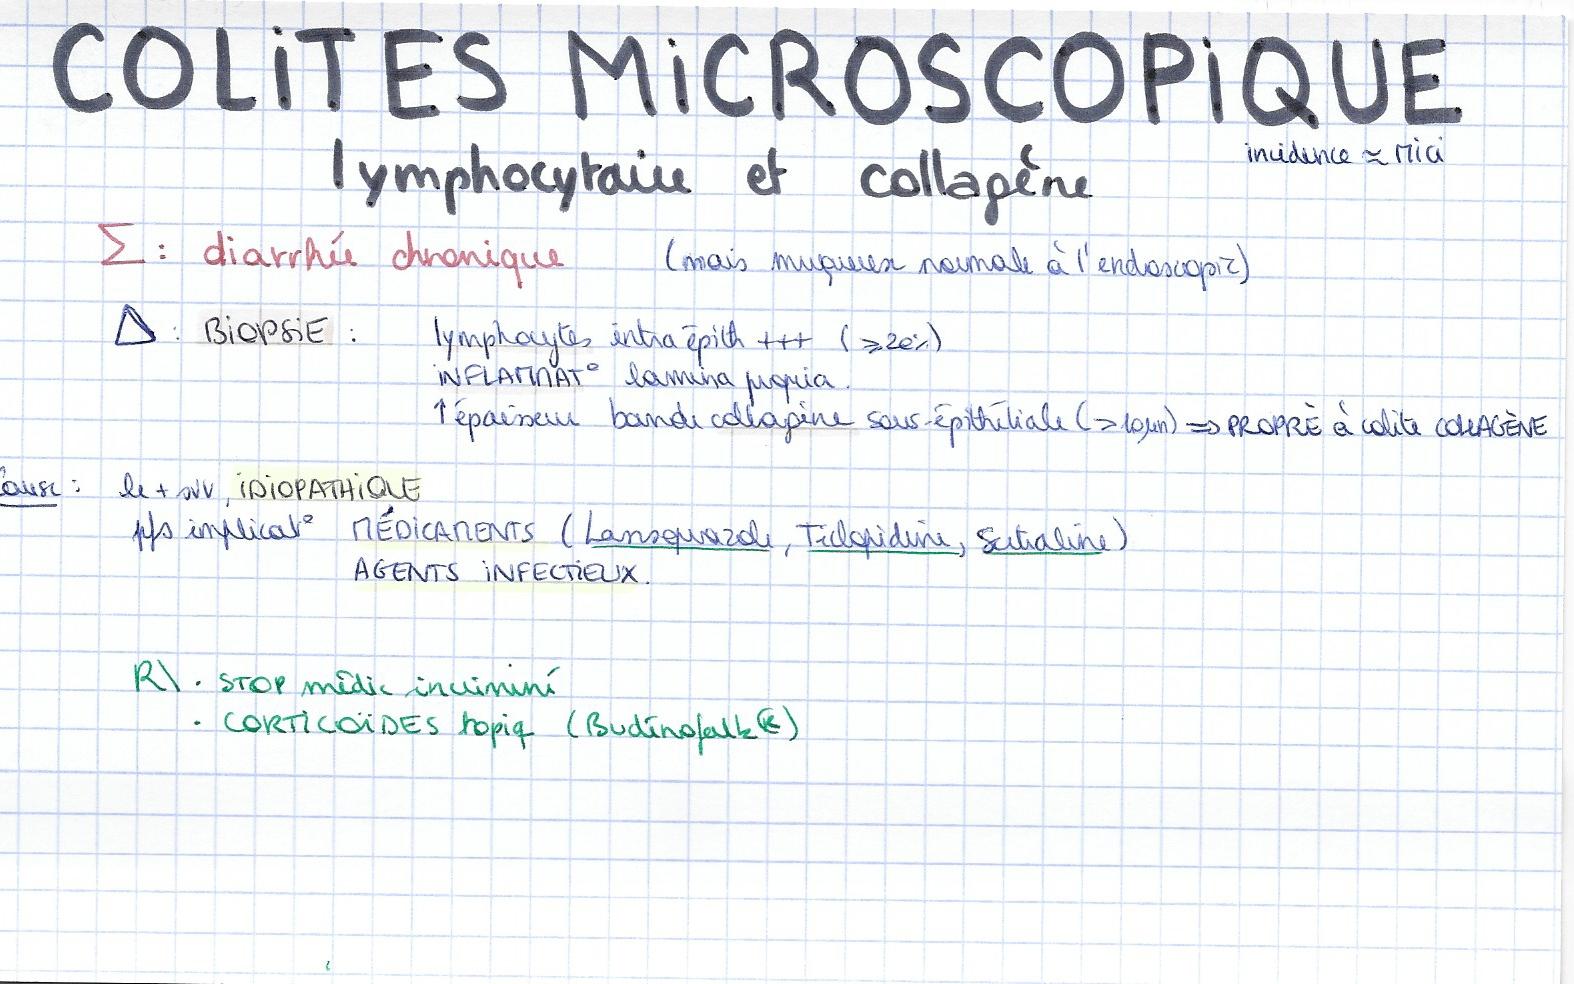 COLiTES MiCROSCOPiQUE
lymphocytaire et collagène
incidence ≈ Mici
Σ : diarrhée chronique (mais muqueuse normale à l'endoscopie)
Δ : BiOPSiE : lymphocytes intra épith +++ (≥20%)
iNFLAMMAT° lamina propria.
↑ épaisseur bande collagène sous-épithéliale (>10µm) => PROPRE à colite COLLAGÈNE
Cause : le + svv, iDiOPATHiQUE
pfs implicat° MÉDICAMENTS (Lansoprazole, Ticlopidine, Sertraline)
AGENTS iNFECTiEUX.
R\ . STOP médic incriminé
. CORTiCOÏDES topiq (Budénofalk®)